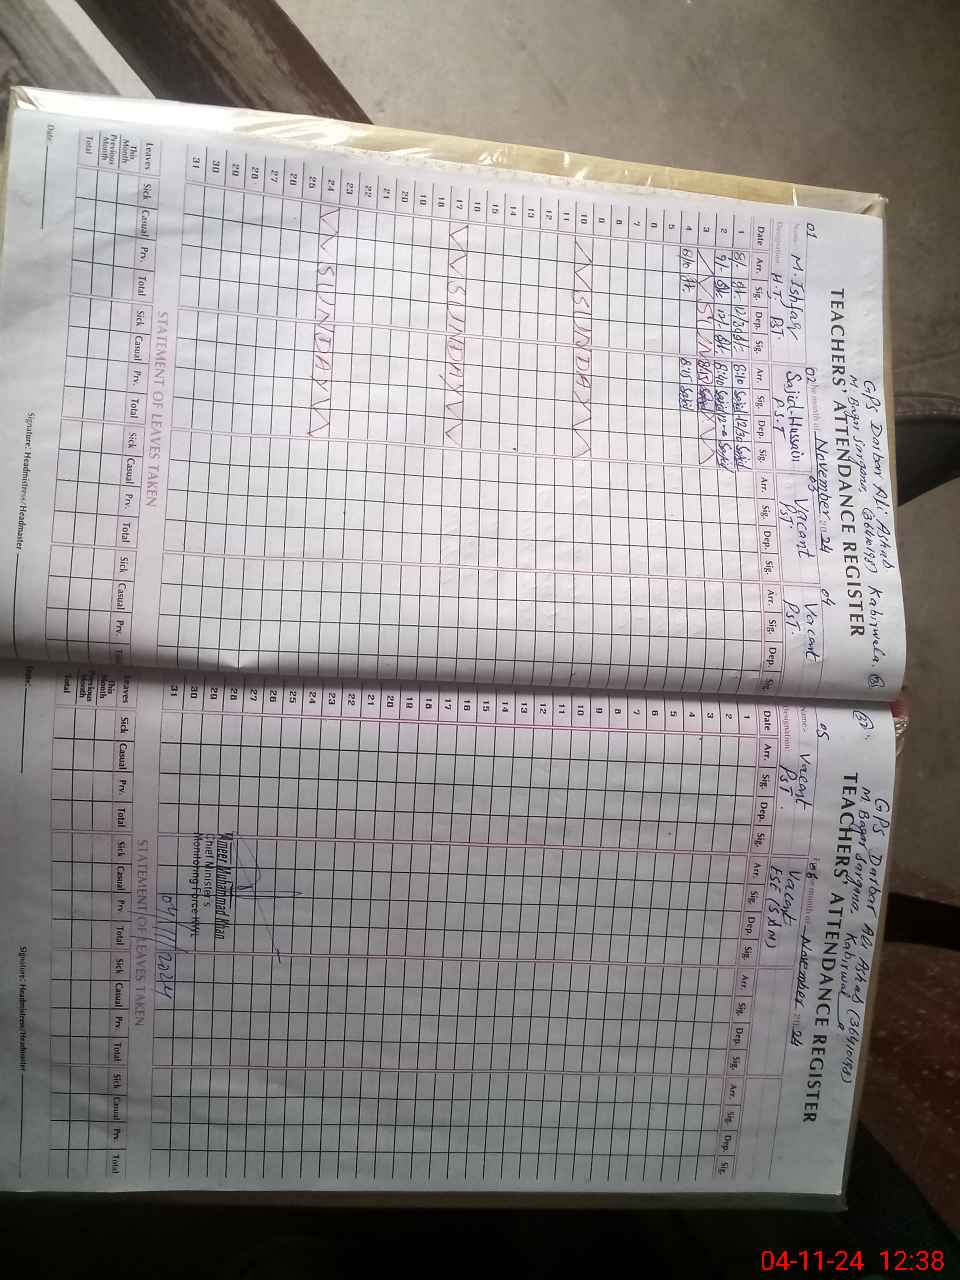 GPS Darbar Ali Ashab
M. Baqar Sargana, Kabirwala.
TEACHERS' ATTENDANCE REGISTER
November 2024
01 02 03 04
Name: M. Ishfaq Sajid Hussain Vacant Vacant
Designation H.T. P.S.T PST PST.
Date Arr. Sig. Dep. Sig. Arr. Sig. Dep. Sig. Arr. Sig. Dep. Sig. Arr. Sig. Dep. Sig.
1
2
3 SUN
4 8:15 Sajid
5
6
7
8
9
10 SUNDAY
11
12
13
14
15
16
17 SUNDAY
18
19
20
21
22
23
24 SUNDAY
25
26
27
28
29
30
31
STATEMENT OF LEAVES TAKEN
Leaves Sick Casual Prv. Total Sick Casual Prv. Total Sick Casual Prv. Total Sick Casual Prv.
This Month
Previous Month
Total
Date: Signature: Headmistress/Headmaster
GPS Darbar Ali Ashab
M. Baqar Sargana, Kabirwala
TEACHERS' ATTENDANCE REGISTER
the month of November 2024
05
Name: Vacant Vacant
Designation: PST ESE (
Date Arr. Sig. Dep. Sig. Arr. Sig. Dep. Sig. Arr. Sig. Dep. Sig. Arr. Sig. Dep. Sig.
1
2
3
4
5
6
7
8
9
10
11
12
13
14
15
16
17
18
19
20
21
22
23
24
25
26
27
28
29
30
31
Ameer Muhammad Khan
Chief Minister's
Monitoring Force KWL
04/11/2024
STATEMENT OF LEAVES TAKEN
Leaves Sick Casual Prv. Total Sick Casual Prv Total Sick Casual Prv. Total Sick Casual Prv. Total
This Month
Previous Month
Total
Date: Signature: Headmistress/Headmaster
04-11-24 12:38